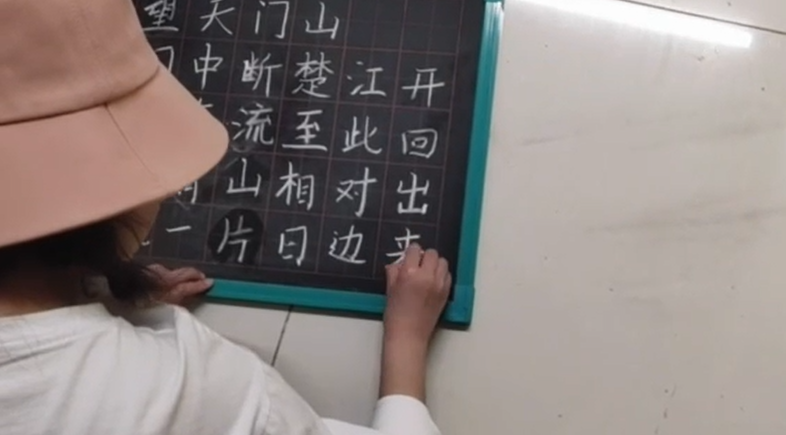 望天门山
中断楚江开
流至此回
山相对出
一片日边来